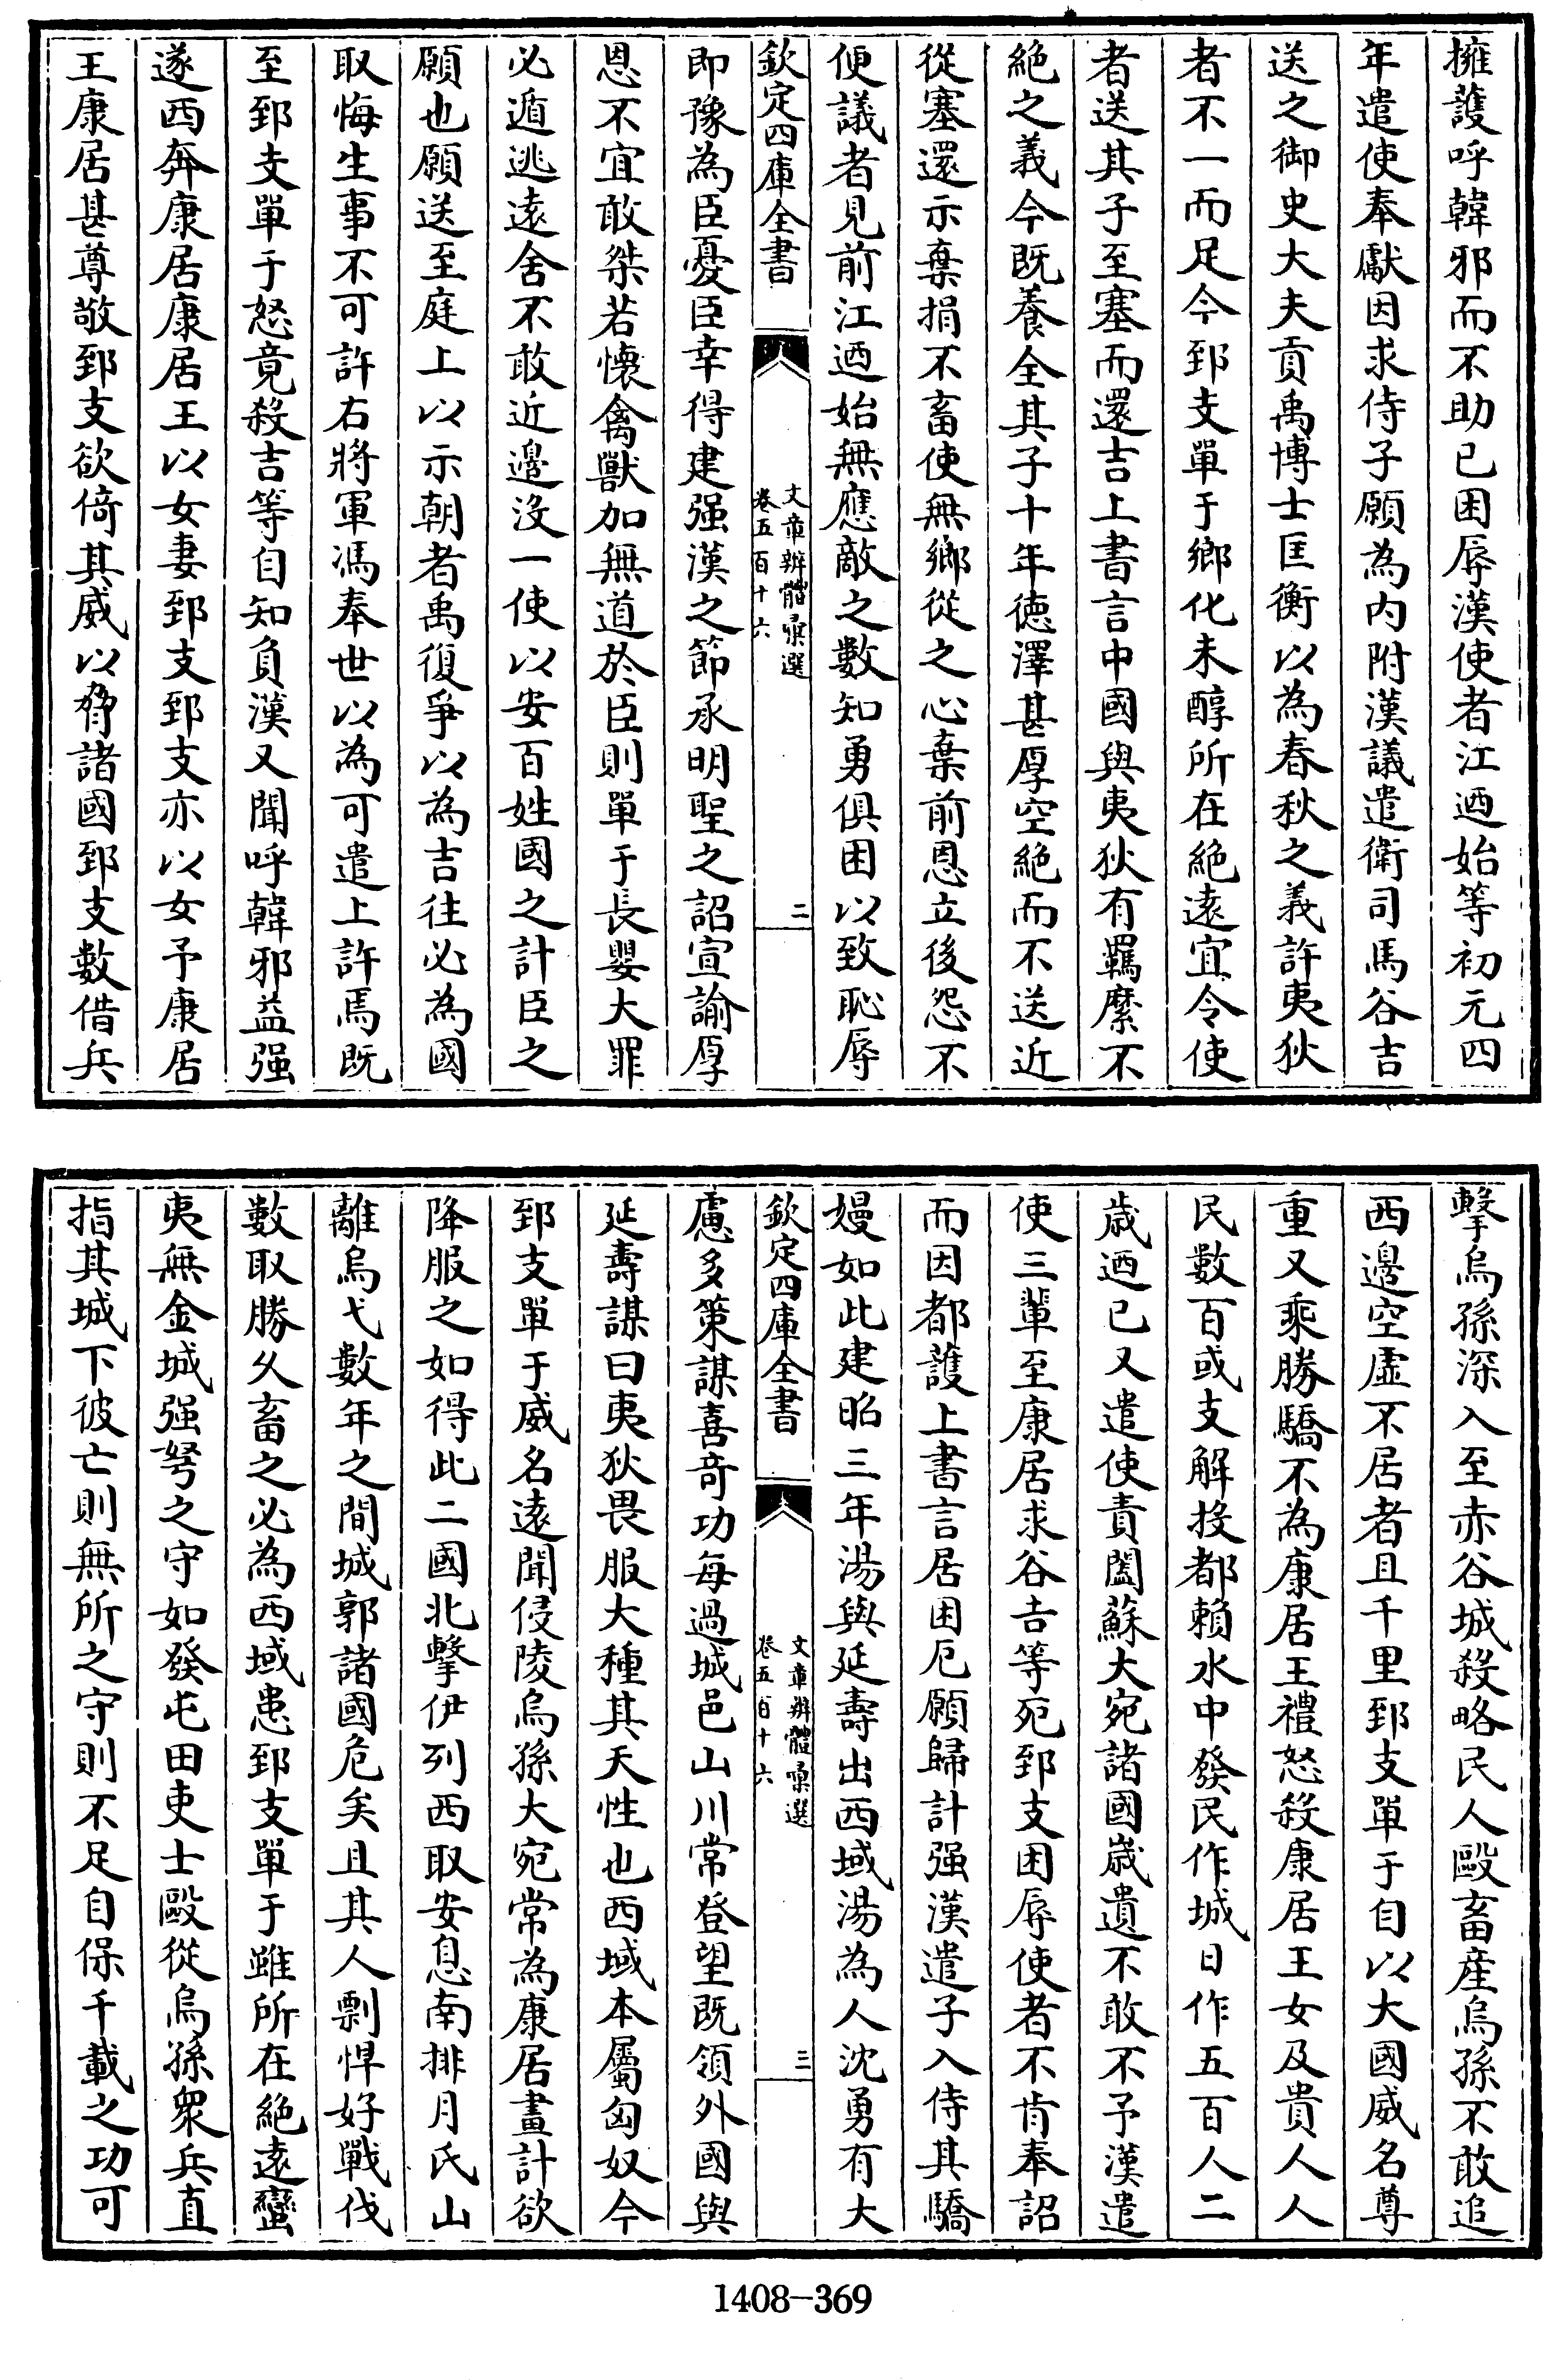 擁護呼韓邪而不助已困辱漢使者江迺始等初元四
年遣使奉獻因求侍子願為內附漢議遣衛司馬谷吉
送之御史大夫貢禹博士匡衡以為春秋之義許夷狄
者不一而足今郅支單于鄉化未醇所在絶遠宜令使
者送其子至塞而還吉上書言中國與夷狄有羈縻不
絶之義今既養全其子十年徳澤甚厚空絶而不送近
從塞還示棄捐不畜使無鄉從之心棄前恩立後怨不
便議者見前江迺始無應敵之數知勇俱困以致恥辱
欽定四庫全書
文章辨體彚選
卷五百十六
二
即豫為臣憂臣幸得建强漢之節承明聖之詔宣諭厚
恩不宜敢桀若懷禽獸加無道於臣則單于長嬰大罪
必遁逃遠舍不敢近邊没一使以安百姓國之計臣之
願也願送至庭上以示朝者禹復爭以為吉往必為國
取悔生事不可許右將軍馮奉世以為可遣上許焉既
至郅支單于怒竟殺吉等自知負漢又聞呼韓邪益强
遂西奔康居康居王以女妻郅支郅支亦以女予康居
王康居甚尊敬郅支欲倚其威以脅諸國郅支數借兵
擊烏孫深入至赤谷城殺略民人毆畜産烏孫不敢追
西邊空虛不居者且千里郅支單于自以大國威名尊
重又乘勝驕不為康居王禮怒殺康居王女及貴人人
民數百或支解投都賴水中發民作城日作五百人二
歲迺已又遣使責闔蘇大宛諸國歲遺不敢不予漢遣
使三輩至康居求谷吉等死郅支困辱使者不肯奉詔
而因都護上書言居困厄願歸計强漢遣子入侍其驕
嫚如此建昭三年湯與延壽出西域湯為人沈勇有大
欽定四庫全書
文章辨體彚選
卷五百十六
三
慮多策謀喜奇功每過城邑山川常登望既領外國與
延壽謀曰夷狄畏服大種其天性也西域本屬匈奴今
郅支單于威名遠聞侵陵烏孫大宛常為康居畫計欲
降服之如得此二國北擊伊列西取安息南排月氏山
離烏弋數年之間城郭諸國危矣且其人剽悍好戰伐
數取勝久畜之必為西域患郅支單于雖所在絶遠蠻
夷無金城强弩之守如發屯田吏士毆從烏孫衆兵直
指其城下彼亡則無所之守則不足自保千載之功可
1408-369